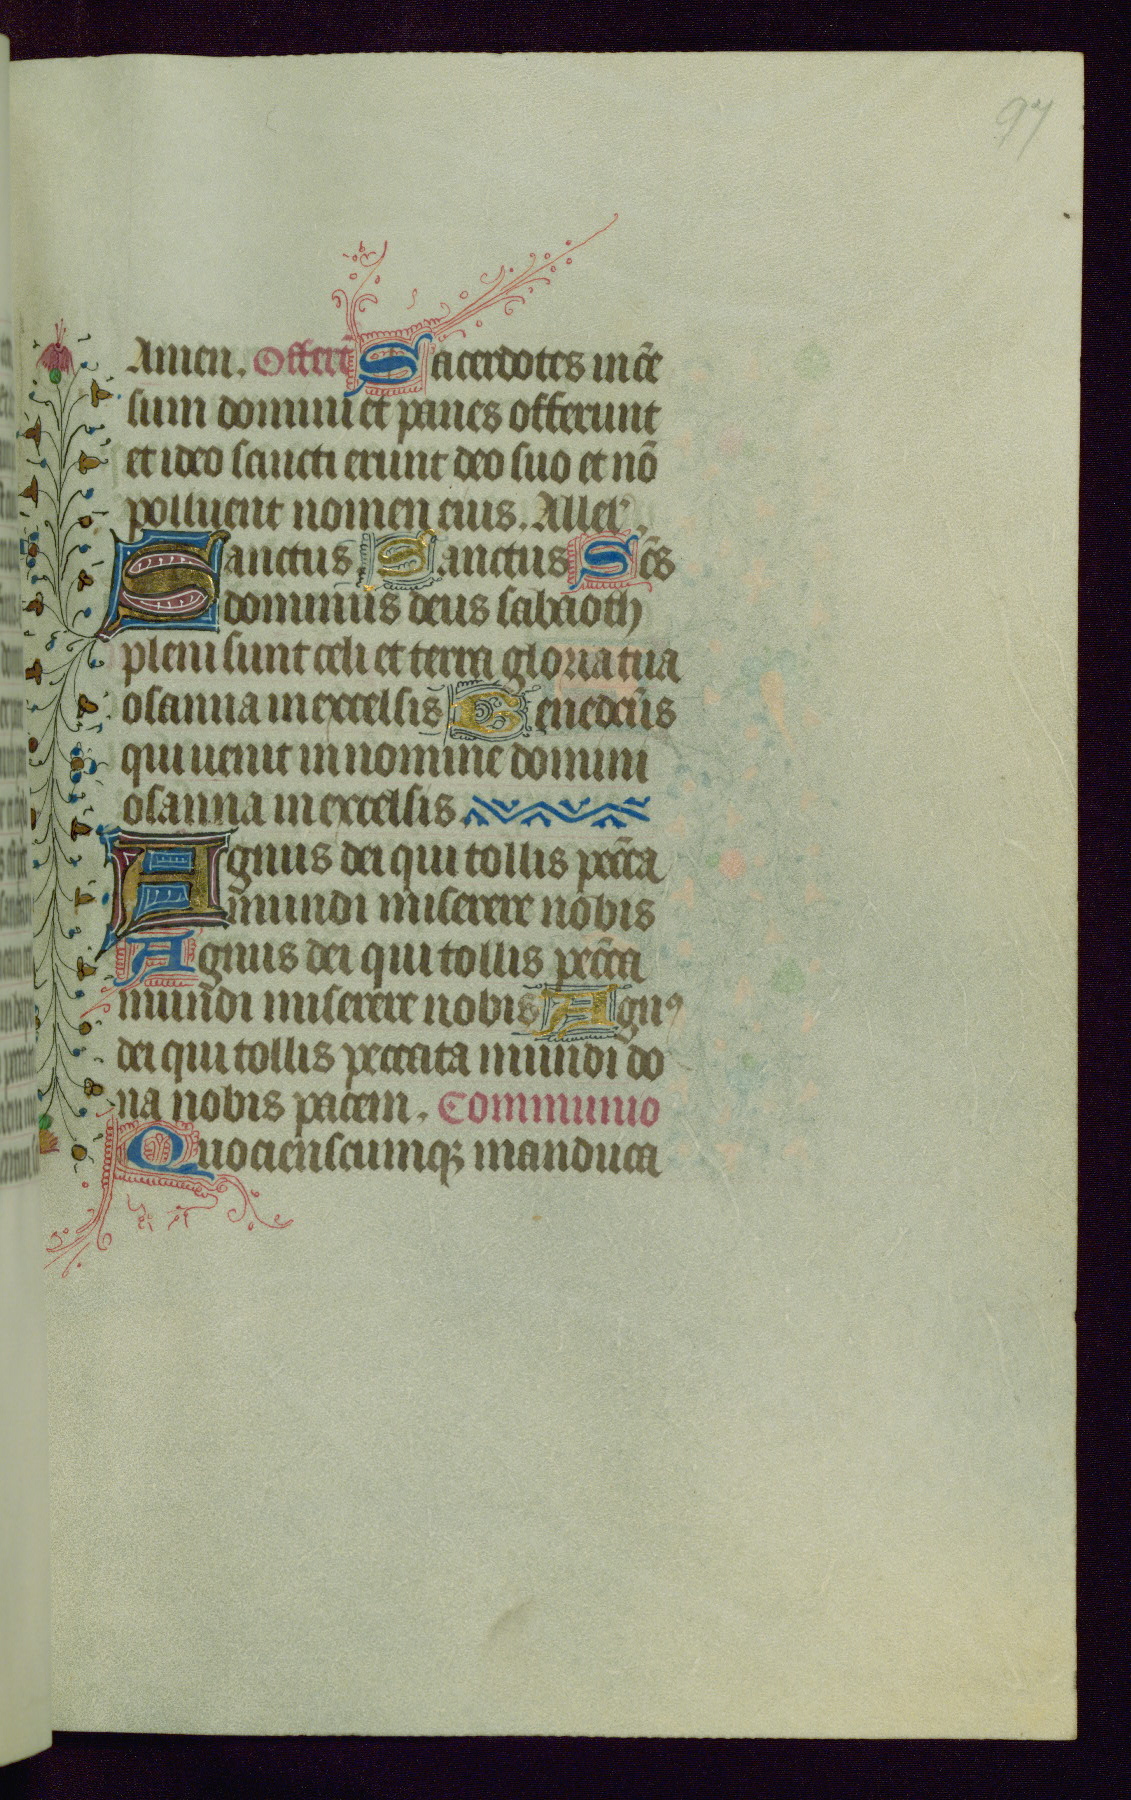 97
Amen. Offert̄ Sacerdotes incē
sum domini et panes offerunt
et ideo sancti erunt deo suo et nō
polluent nomen eius. Allel'.
Sanctus Sanctus Sc̄s
dominus deus sabaoth
pleni sunt celi et terra gloria tua
osanna in excelsis Benedc̄us
qui uenit in nomine domini
osanna in excelsis.
Agnus dei qui tollis pecc̄a
mundi miserere nobis
Agnus dei qui tollis pecc̄a
mundi miserere nobis Agnꝰ
dei qui tollis peccata mundi do
na nobis pacem. Communio
Quocienscumqꝫ manduca